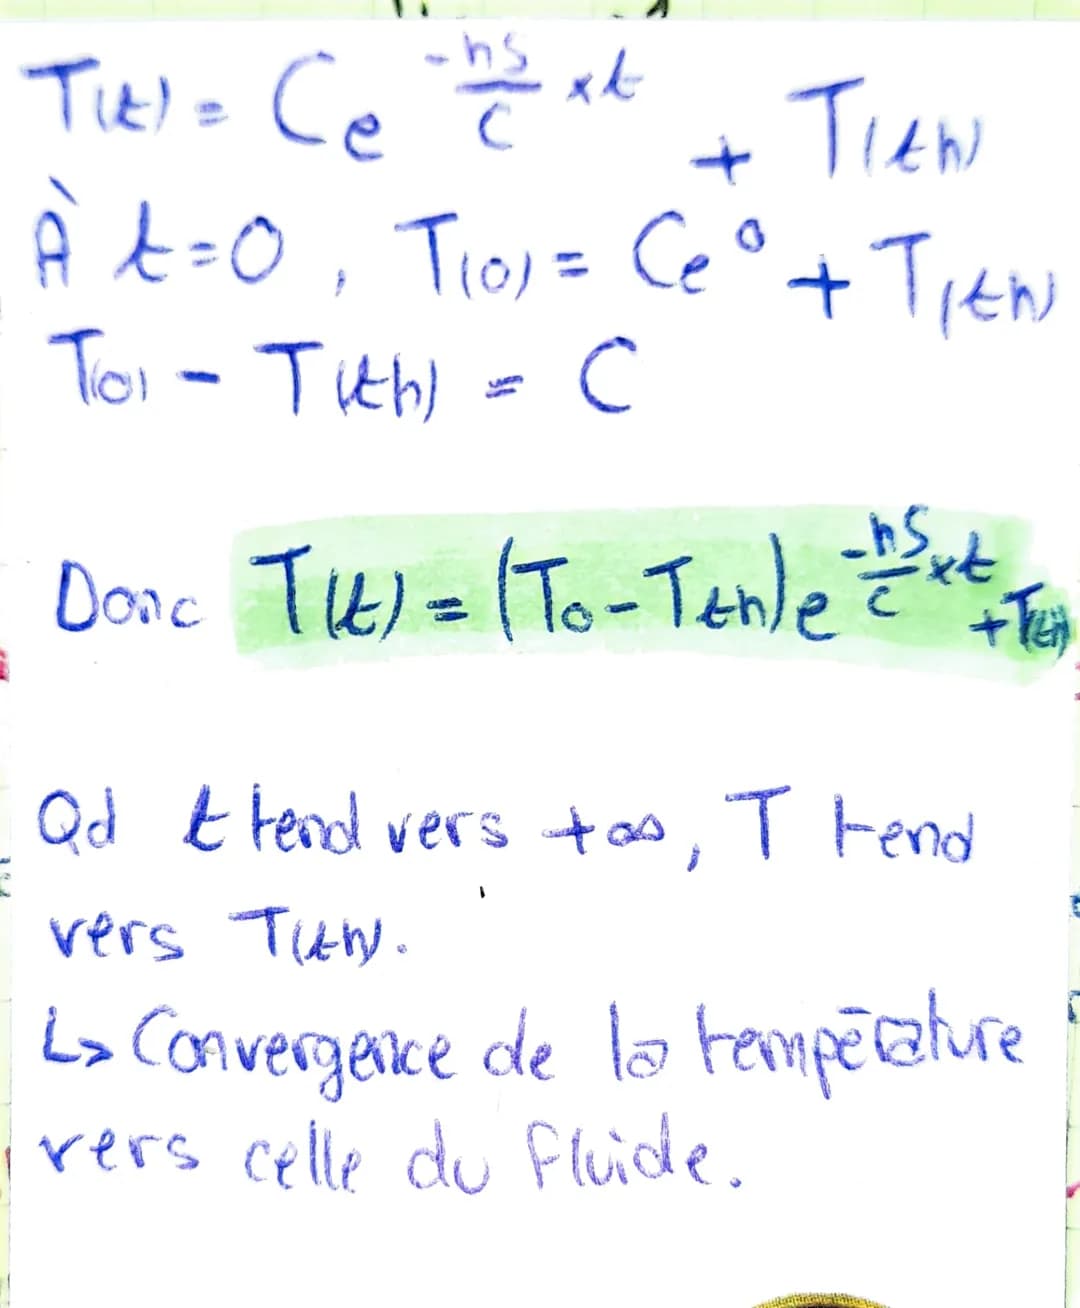 T(t) = Ce^(-hS/C × t) + T(th)
À t=0, T(0) = Ce^0 + T(th)
T(0) - T(th) = C
Donc T(t) = (T₀-Tth)e^(-hS/C × t) + T(th)
Qd t tend vers +∞, T tend
vers T(th).
↳ Convergence de la température
vers celle du fluide.